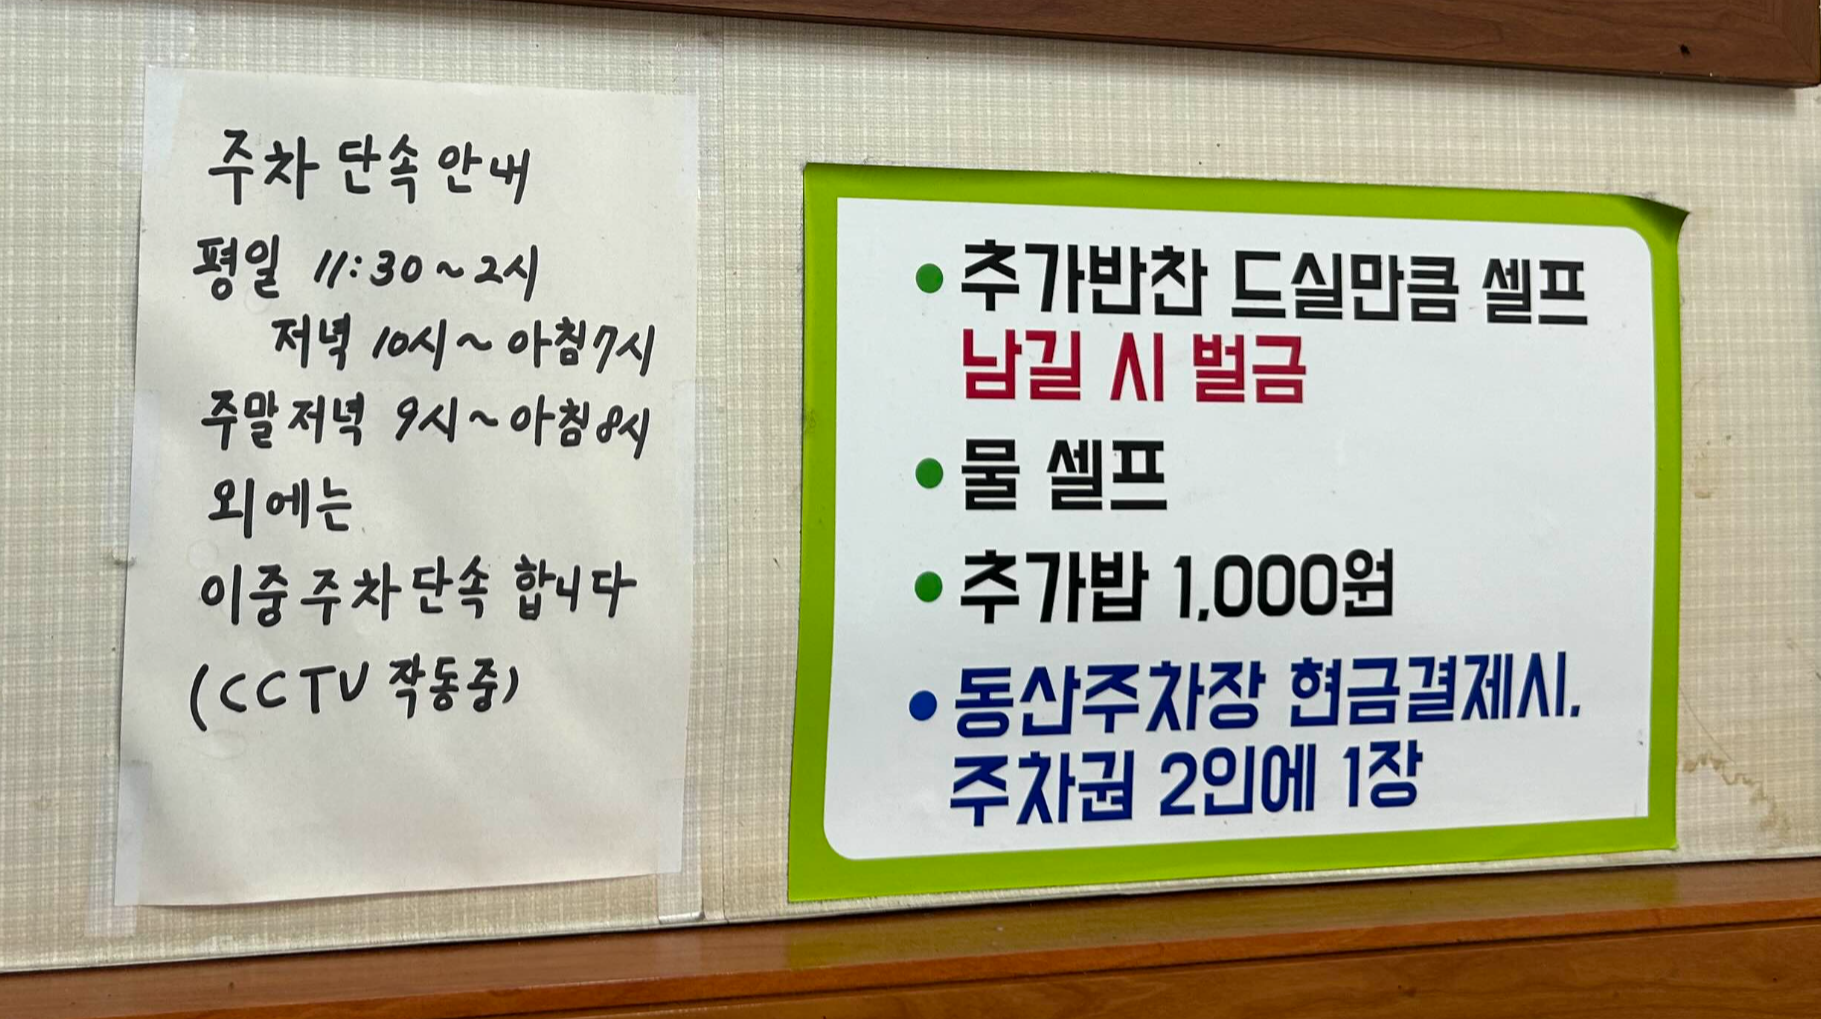 주차 단속 안내
평일 11:30~2시
저녁 10시~아침7시
주말저녁 9시~아침8시
외에는
이중주차단속 합니다
(CCTV 작동중)
• 추가반찬 드실만큼 셀프
남길 시 벌금
• 물 셀프
• 추가밥 1,000원
• 동산주차장 현금결제시.
주차권 2인에 1장